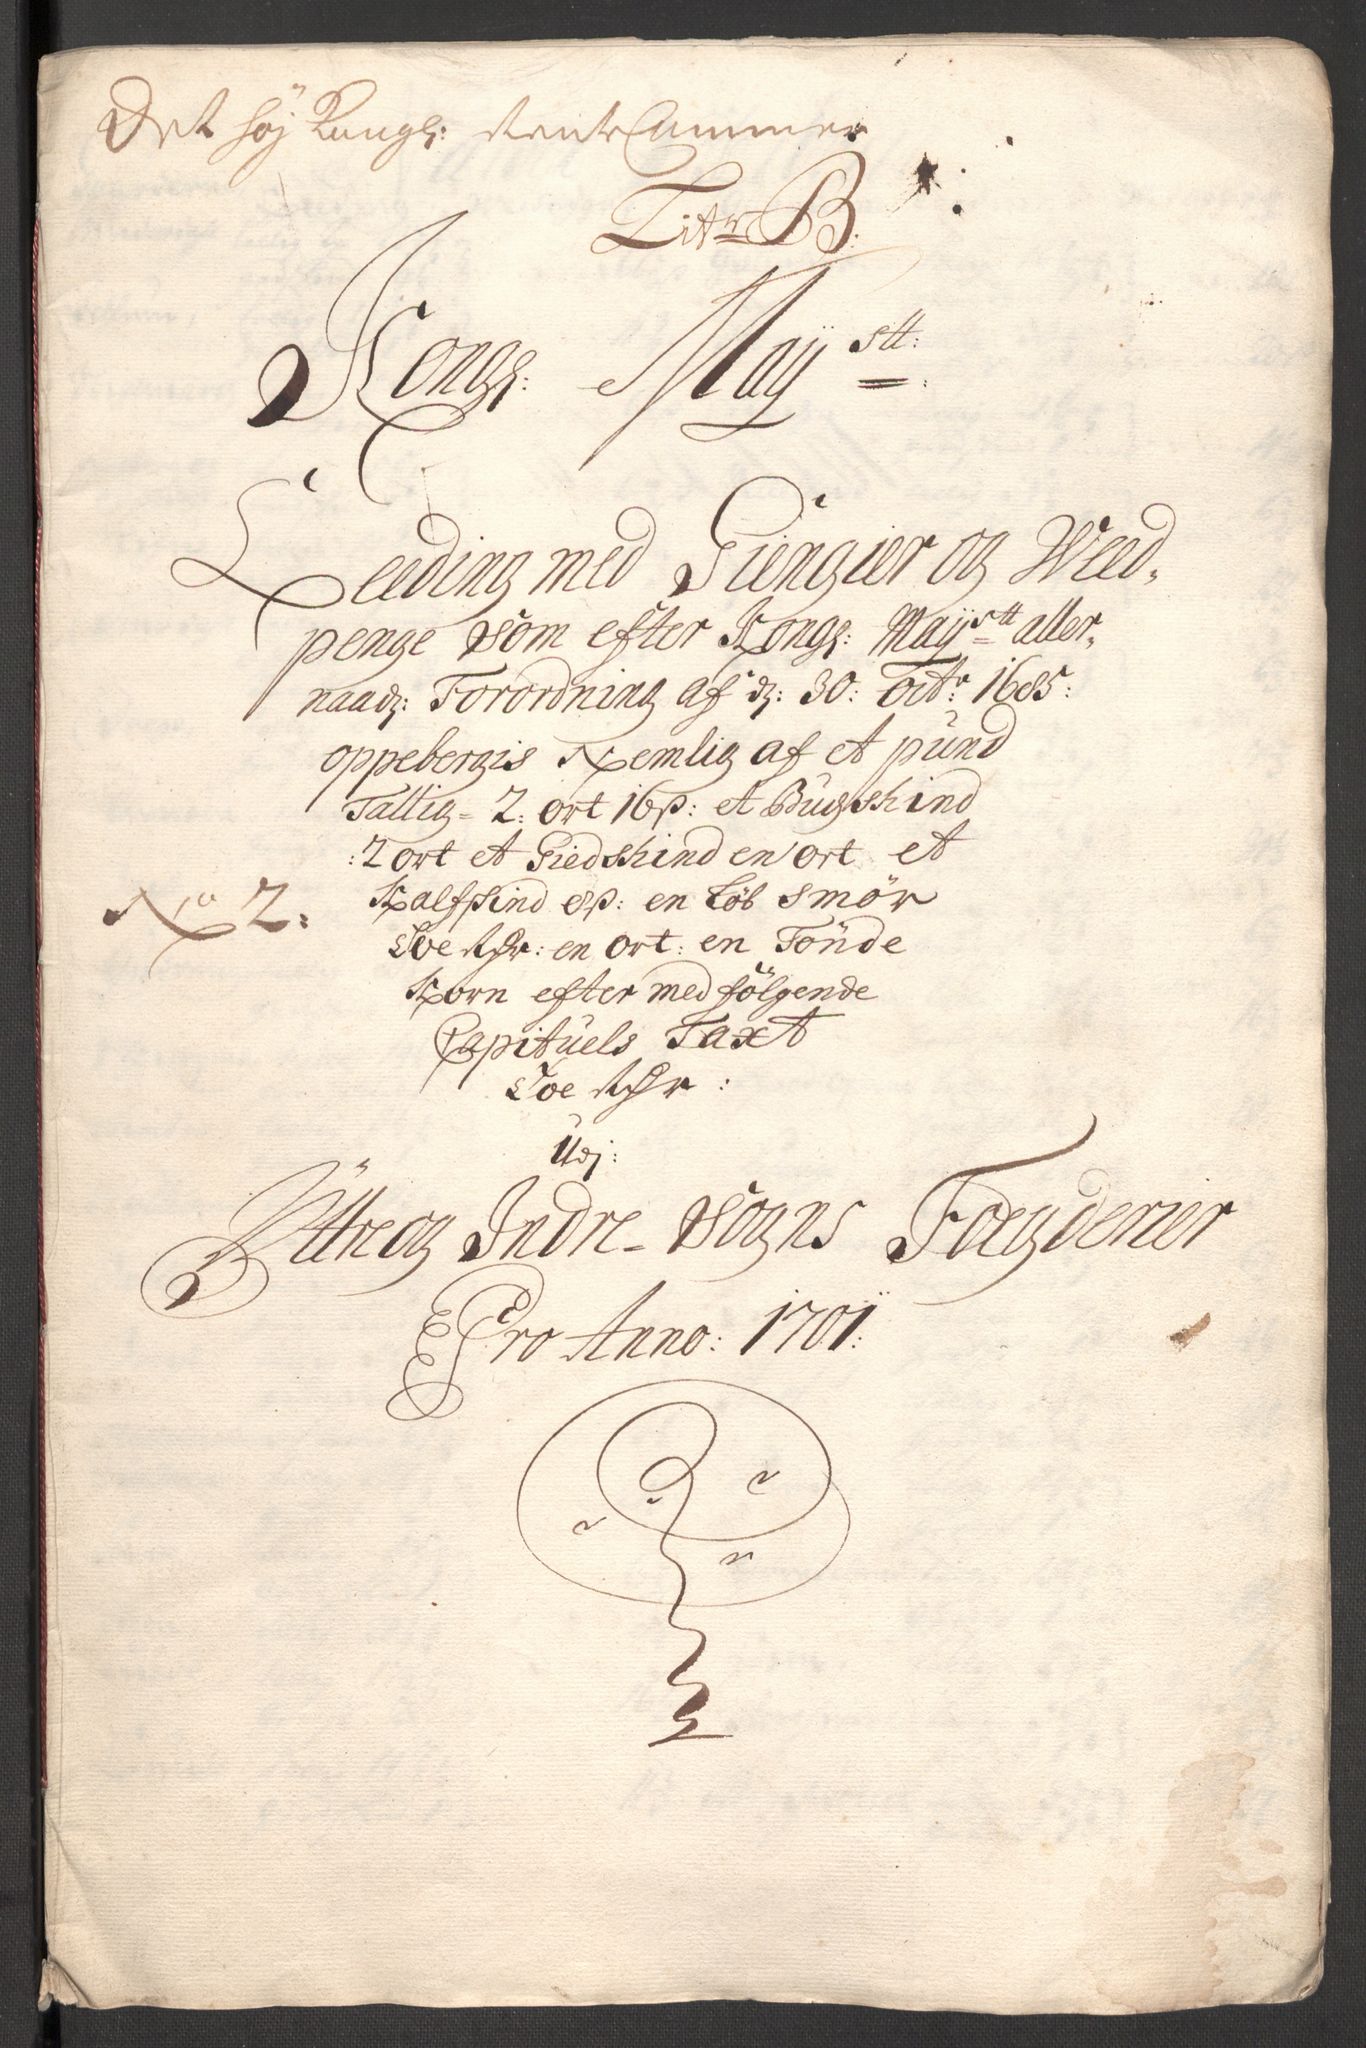 Det höj Kongl: RenteCammer
Litr B:
Kongl: Mayst:
Leeding med Giengier og Weed-
penge som efter Kongl: Mayst aller-
naadl: Forordning af d: 30: Octr: 1685:
oppebergis Nemlig af et pund
Tallig = 2: ort 16 s: et Bugskind
: 2 ort et Giedskind en ort et
Kalfskind 8 s: en Löb smör
Toe Rdr: en ort: en Tönde
No 2: Korn efter medfölgende
Capituels Taxt
Toe Rdr:
Udj:
Ÿttre og Indre-Sogns Fogderier
Pro Anno: 1701: